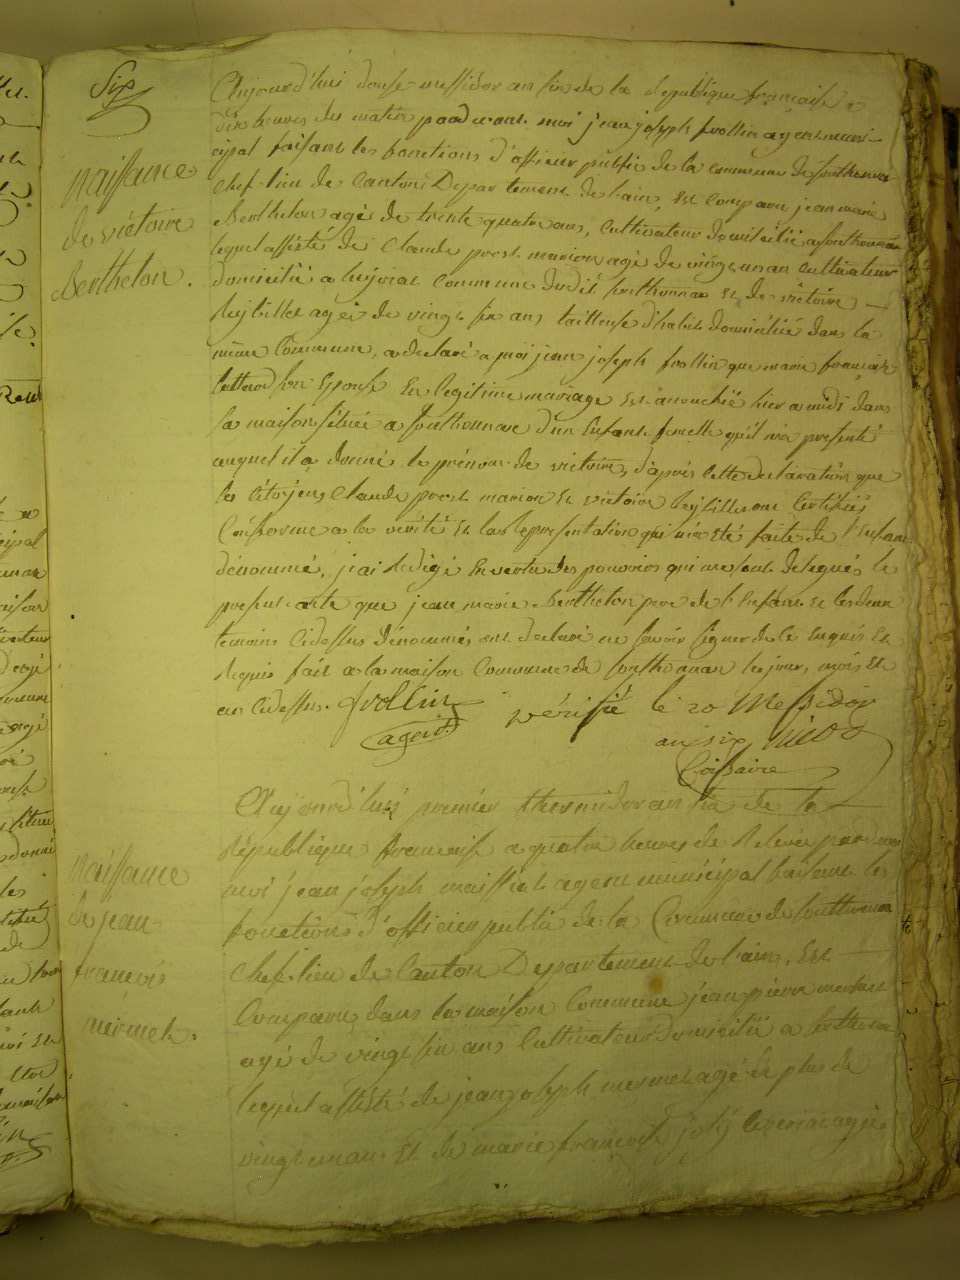 Six
naissance
de victoire
Bertheton.
Aujourd'hui douse messidor an six de la Republique française a
dix heures du matin pardevant moi jean joseph vollin agent muni-
cipal faisant les fonctions d'officier public de la commune de
chef lieu de canton Departement de l'ain, Est comparu jean marie
Bertheton agé de trente quatre ans, Cultivateur domicilié a
lequel assisté de Claude prost marion agé de vingt un an cultivateur
domicilié a commune dudit et de victoire
agée de vingt six ans tailleuse d'habit domiciliée dans la
même Commune, a declaré a moi jean joseph vollin que marie françoise
son Epouse En legitime mariage Est accouchée hier a midi dans
sa maison située a d'un Enfant femelle qu'il m'a presenté
auquel il a donné le prénom de victoire, d'après cette declaration que
les citoyens Claude prost marion Et victoire ont Certifiés
Conforme a la vérité Et la representation qui m'a Eté faite de l'Enfant
dénommé, j'ai Redigé En vertu des pouvoirs qui me sont delegués le
present acte que jean marie Bertheton pere de l'Enfant Et les deux
temoins Cidessus dénommés ont declaré ne savoir signer de ce Enquis Et
Requis fait a la maison Commune de les jour, mois Et
an Cidessus. vollin
agent
vérifié le 20 Messidor
an six
Coissaire
naissance
de jean
françois
mermet.
Aujourd'hui premier thermidor an six de la
République francaise a quatre heures de Relevée pardevant
moi jean joseph maissiat agent municipal faisant les
fonctions d'officier public de la Commune de
Chef lieu de Canton Departement de l'ain, Est
Comparu dans la maison Commune jean pierre mermet
agé de vingt six ans Cultivateur domicilié a
lequel assisté de jean joseph mermet agé de plus de
vingt un an Et de marie françoise agée